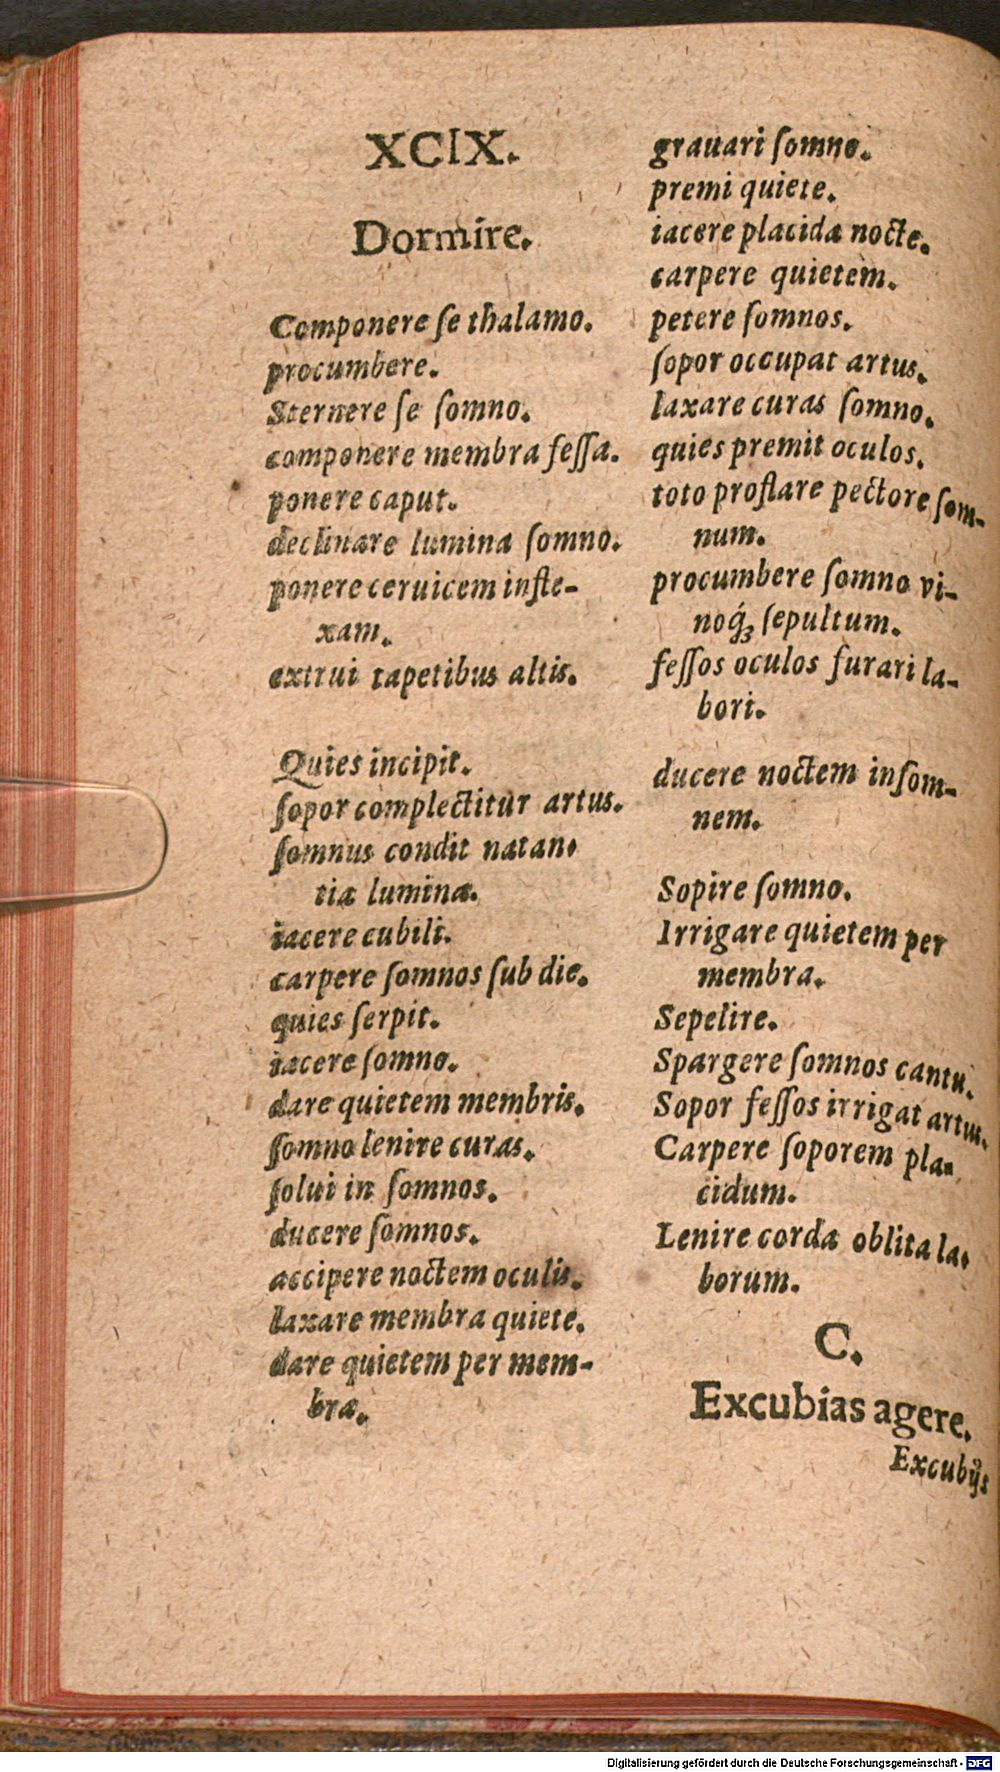 XCIX.
Dormire.
Componere ſe thalamo.
procumbere.
Sternere ſe ſomno.
componere membra feſſa.
ponere caput.
declinare lumina ſomno.
ponere ceruicem infle-
xam.
extrui tapetibus altis.
Quies incipit.
ſopor complectitur artus.
ſomnus condit natan-
tia lumina.
iacere cubili.
carpere ſomnos ſub die.
quies ſerpit.
iacere ſomno.
dare quietem membris.
ſomno lenire curas.
ſolui in ſomnos.
ducere ſomnos.
accipere noctem oculis.
laxare membra quiete.
dare quietem per mem-
bra.
grauari ſomno.
premi quiete.
iacere placida nocte.
carpere quietem.
petere ſomnos.
ſopor occupat artus.
laxare curas ſomno.
quies premit oculos.
toto proflare pectore ſom-
num.
procumbere ſomno vi-
noq́ꝫ ſepultum.
feſſos oculos furari la-
bori.
ducere noctem inſom-
nem.
Sopire ſomno.
Irrigare quietem per
membra.
Sepelire.
Spargere ſomnos cantu.
Sopor feſſos irrigat artus.
Carpere ſoporem pla-
cidum.
Lenire corda oblita la-
borum.
C.
Excubias agere.
Excubijs
Digitalisierung gefördert durch die Deutsche Forschungsgemeinschaft - DFG